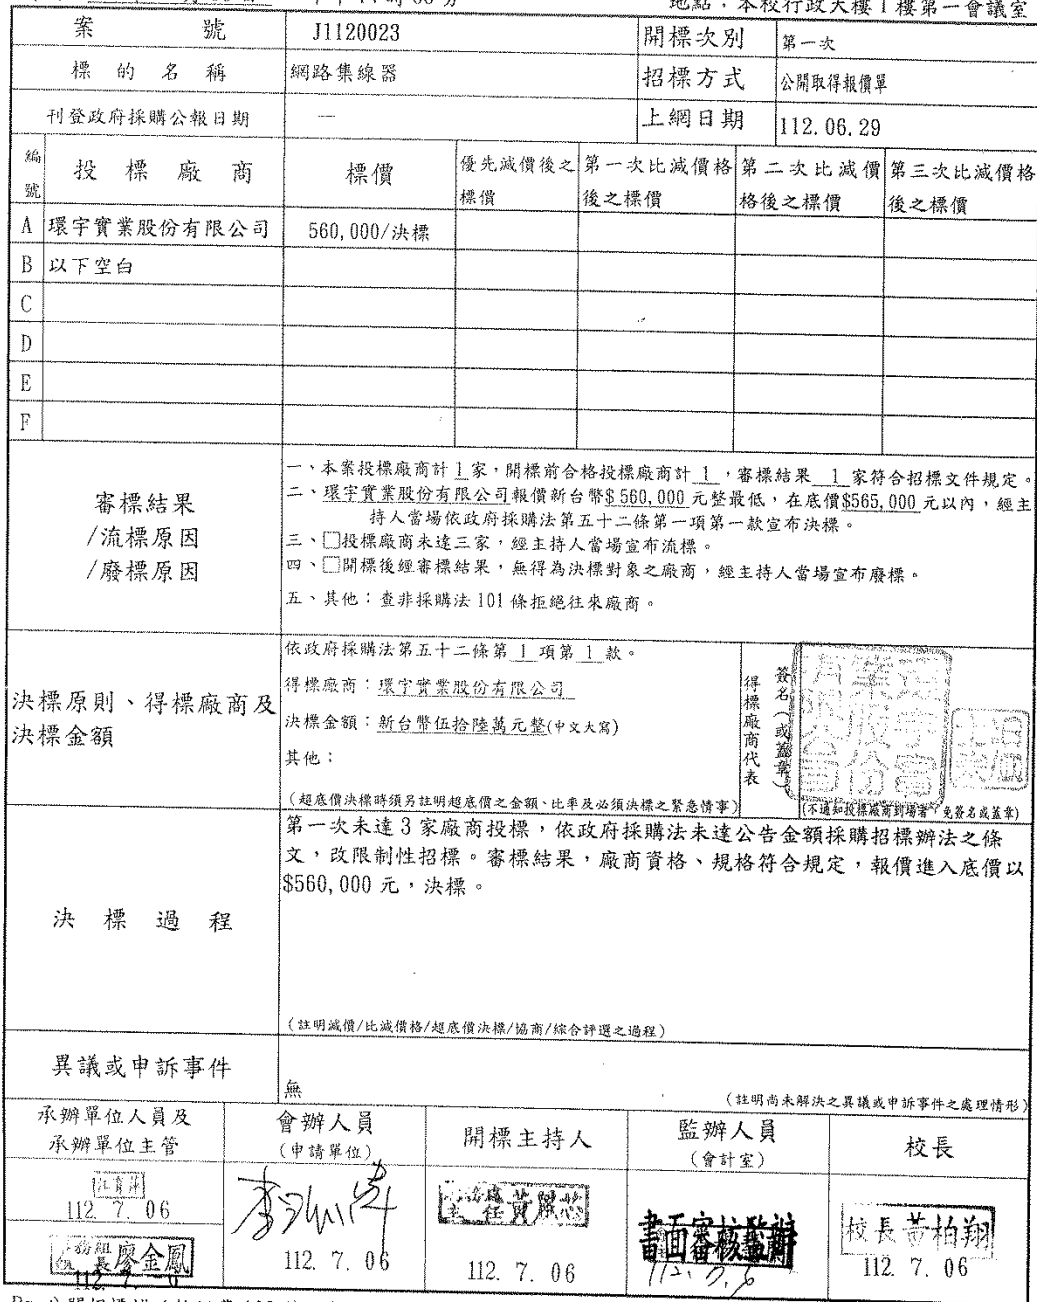 地點：本校行政大樓1樓第一會議室
案 號 J1120023 開標次別 第一次
標的名稱 網路集線器 招標方式 公開取得報價單
刊登政府採購公報日期 — 上網日期 112.06.29
編號 投標廠商 標價 優先減價後之標價 第一次比減價格後之標價 第二次比減價格後之標價 第三次比減價格後之標價
A 環宇實業股份有限公司 560,000/決標
B 以下空白
C
D
E
F
審標結果
/流標原因
/廢標原因
一、本案投標廠商計 1 家，開標前合格投標廠商計 1 ，審標結果 1 家符合招標文件規定。
二、環宇實業股份有限公司報價新台幣$ 560,000 元整最低，在底價$565,000 元以內，經主
持人當場依政府採購法第五十二條第一項第一款宣布決標。
三、□投標廠商未達三家，經主持人當場宣布流標。
四、□開標後經審標結果，無得為決標對象之廠商，經主持人當場宣布廢標。
五、其他：查非採購法 101 條拒絕往來廠商。
決標原則、得標廠商及
決標金額
依政府採購法第五十二條第 1 項第 1 款。
得標廠商：環宇實業股份有限公司
決標金額：新台幣伍拾陸萬元整(中文大寫)
其他：
(超底價決標時須另註明超底價之金額、比率及必須決標之緊急情事)
得標廠商代表
簽名(或蓋章)
(不通知投標廠商到場者，免簽名或蓋章)
決標過程
第一次未達 3 家廠商投標，依政府採購法未達公告金額採購招標辦法之條
文，改限制性招標。審標結果，廠商資格、規格符合規定，報價進入底價以
$560,000 元，決標。
(註明減價/比減價格/超底價決標/協商/綜合評選之過程)
異議或申訴事件
無
(註明尚未解決之異議或申訴事件之處理情形)
承辦單位人員及
承辦單位主管
會辦人員
(申請單位)
開標主持人
監辦人員
(會計室)
校長
112. 7. 06
廖金鳳
112. 7. 06
主任黃
112. 7. 06
書面審核監辦
112. 7. 6
校長黃柏翔
112. 7. 06